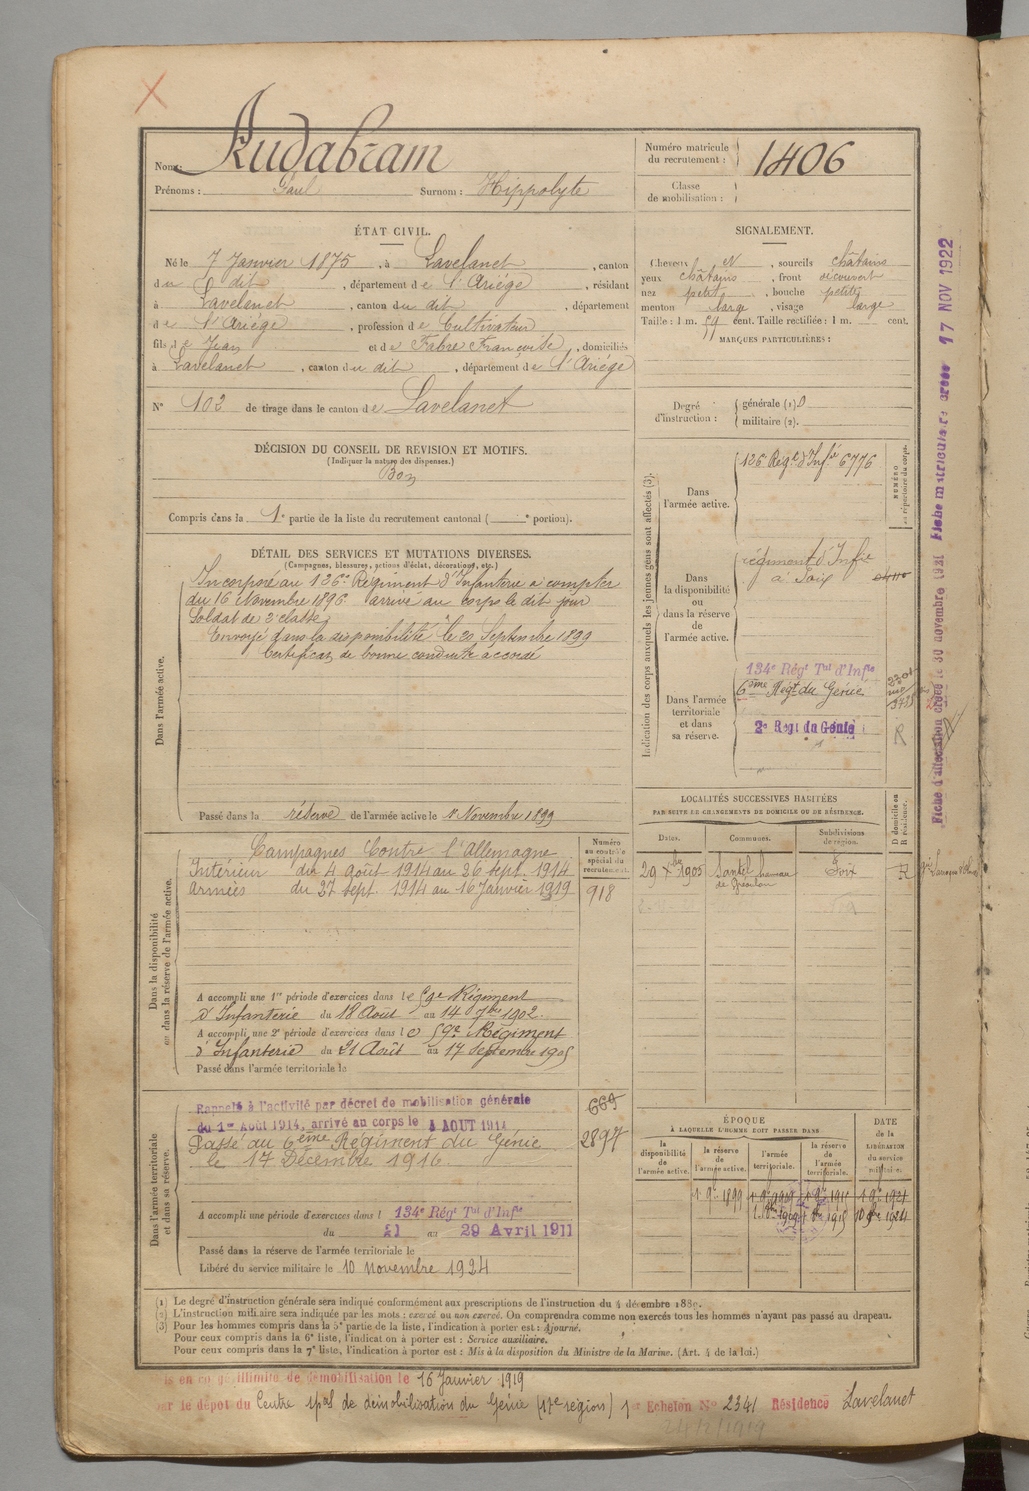 Nom: Audabram
Prénoms : Paul Surnom : Hippolyte
Numéro matricule du recrutement : 1406
Classe de mobilisation :
ÉTAT CIVIL.
Né le 7 Janvier 1875, à Lavelanet, canton
du dit, département de l'Ariége, résidant
à Lavelanet, canton du dit, département
de l'Ariége, profession de Cultivateur
fils de Jean et de Fabre Françoise, domiciliés
à Lavelanet, canton du dit, département de l'Ariége
N° 102 de tirage dans le canton de Lavelanet
SIGNALEMENT.
Cheveux N, sourcils châtains
yeux châtains, front découvert
nez petit, bouche petite
menton large, visage large
Taille : 1 m. 59 cent. Taille rectifiée : 1 m. cent.
MARQUES PARTICULIÈRES :
Degré d'instruction : générale (1) 0
militaire (2).
DÉCISION DU CONSEIL DE REVISION ET MOTIFS.
(Indiquer la nature des dispenses.)
Bon
Compris dans la 1e partie de la liste du recrutement cantonal ( e portion).
DÉTAIL DES SERVICES ET MUTATIONS DIVERSES.
(Campagnes, blessures, actions d'éclat, décorations, etc.)
Dans l'armée active.
Incorporé au 126e Régiment d'Infanterie à compter
du 16 Novembre 1896 arrivé au corps le dit jour
Soldat de 2e classe
Envoyé dans la disponibilité le 20 Septembre 1899
Certificat de bonne conduite accordé
Passé dans la réserve de l'armée active le 1er Novembre 1899
Indication des corps auxquels les jeunes gens sont affectés (3).
NUMÉRO au répertoire du corps.
Dans l'armée active.
126 Régt d'Infie 6776
Dans la disponibilité ou dans la réserve de l'armée active.
régiment d'Infie
à Foix
Dans l'armée territoriale et dans sa réserve.
134e Régt Tal d'Infie
6ème Régt du Génie
2e Régt du Génie
R
Fiche d'allocation créée le 30 novembre 1931 Fiche matriculaire créée 17 NOV 1922
LOCALITÉS SUCCESSIVES HABITÉES
PAR SUITE DE CHANGEMENTS DE DOMICILE OU DE RÉSIDENCE.
Dates. Communes. Subdivisions de région. D domicile ou R résidence.
29 Xbre 1905 hameau Foix R
Dans la disponibilité et dans la réserve de l'armée active.
Numéro au contrôle spécial du recrutement.
Campagnes Contre l'Allemagne
Intérieur du 4 Août 1914 au 26 sept. 1914
Armées du 27 sept. 1914 au 16 Janvier 1919
918
A accompli une 1re période d'exercices dans le 59e Régiment
d'Infanterie du 18 Août au 14 7bre 1902
A accompli une 2e période d'exercices dans le 59e Régiment
d'Infanterie du 21 Août au 17 Septembre 1905
Passé dans l'armée territoriale le
Dans l'armée territoriale et dans sa réserve.
Rappelé à l'activité par décret de mobilisation générale
du 1er Août 1914, arrivé au corps le 4 AOUT 1914
Passé au 6ème Régiment du Génie
le 17 Décembre 1916
669
2897
A accompli une période d'exercices dans l 134e Régt Tal d'Infie
du 21 au 29 Avril 1911
Passé dans la réserve de l'armée territoriale le
Libéré du service militaire le 10 novembre 1924
ÉPOQUE
À LAQUELLE L'HOMME DOIT PASSER DANS
la disponibilité de l'armée active. la réserve de l'armée active. l'armée territoriale. la réserve de l'armée territoriale. DATE de la LIBÉRATION du service militaire.
1 9bre 1899 1 9bre 1909 1 9bre 1915 1 9bre 1921
(1) Le degré d'instruction générale sera indiqué conformément aux prescriptions de l'instruction du 4 décembre 1889.
(2) L'instruction militaire sera indiquée par les mots : exercé ou non exercé. On comprendra comme non exercés tous les hommes n'ayant pas passé au drapeau.
(3) Pour les hommes compris dans la 5e partie de la liste, l'indication à porter est : Ajourné.
Pour ceux compris dans la 6e liste, l'indication à porter est : Service auxiliaire.
Pour ceux compris dans la 7e liste, l'indication à porter est : Mis à la disposition du Ministre de la Marine. (Art. 4 de la loi.)
is en congé illimité de démobilisation le 16 Janvier 1919
par le dépot du Centre spal de démobilisation du Génie (17e région) 1er Echelon N° 2341 Résidence Lavelanet